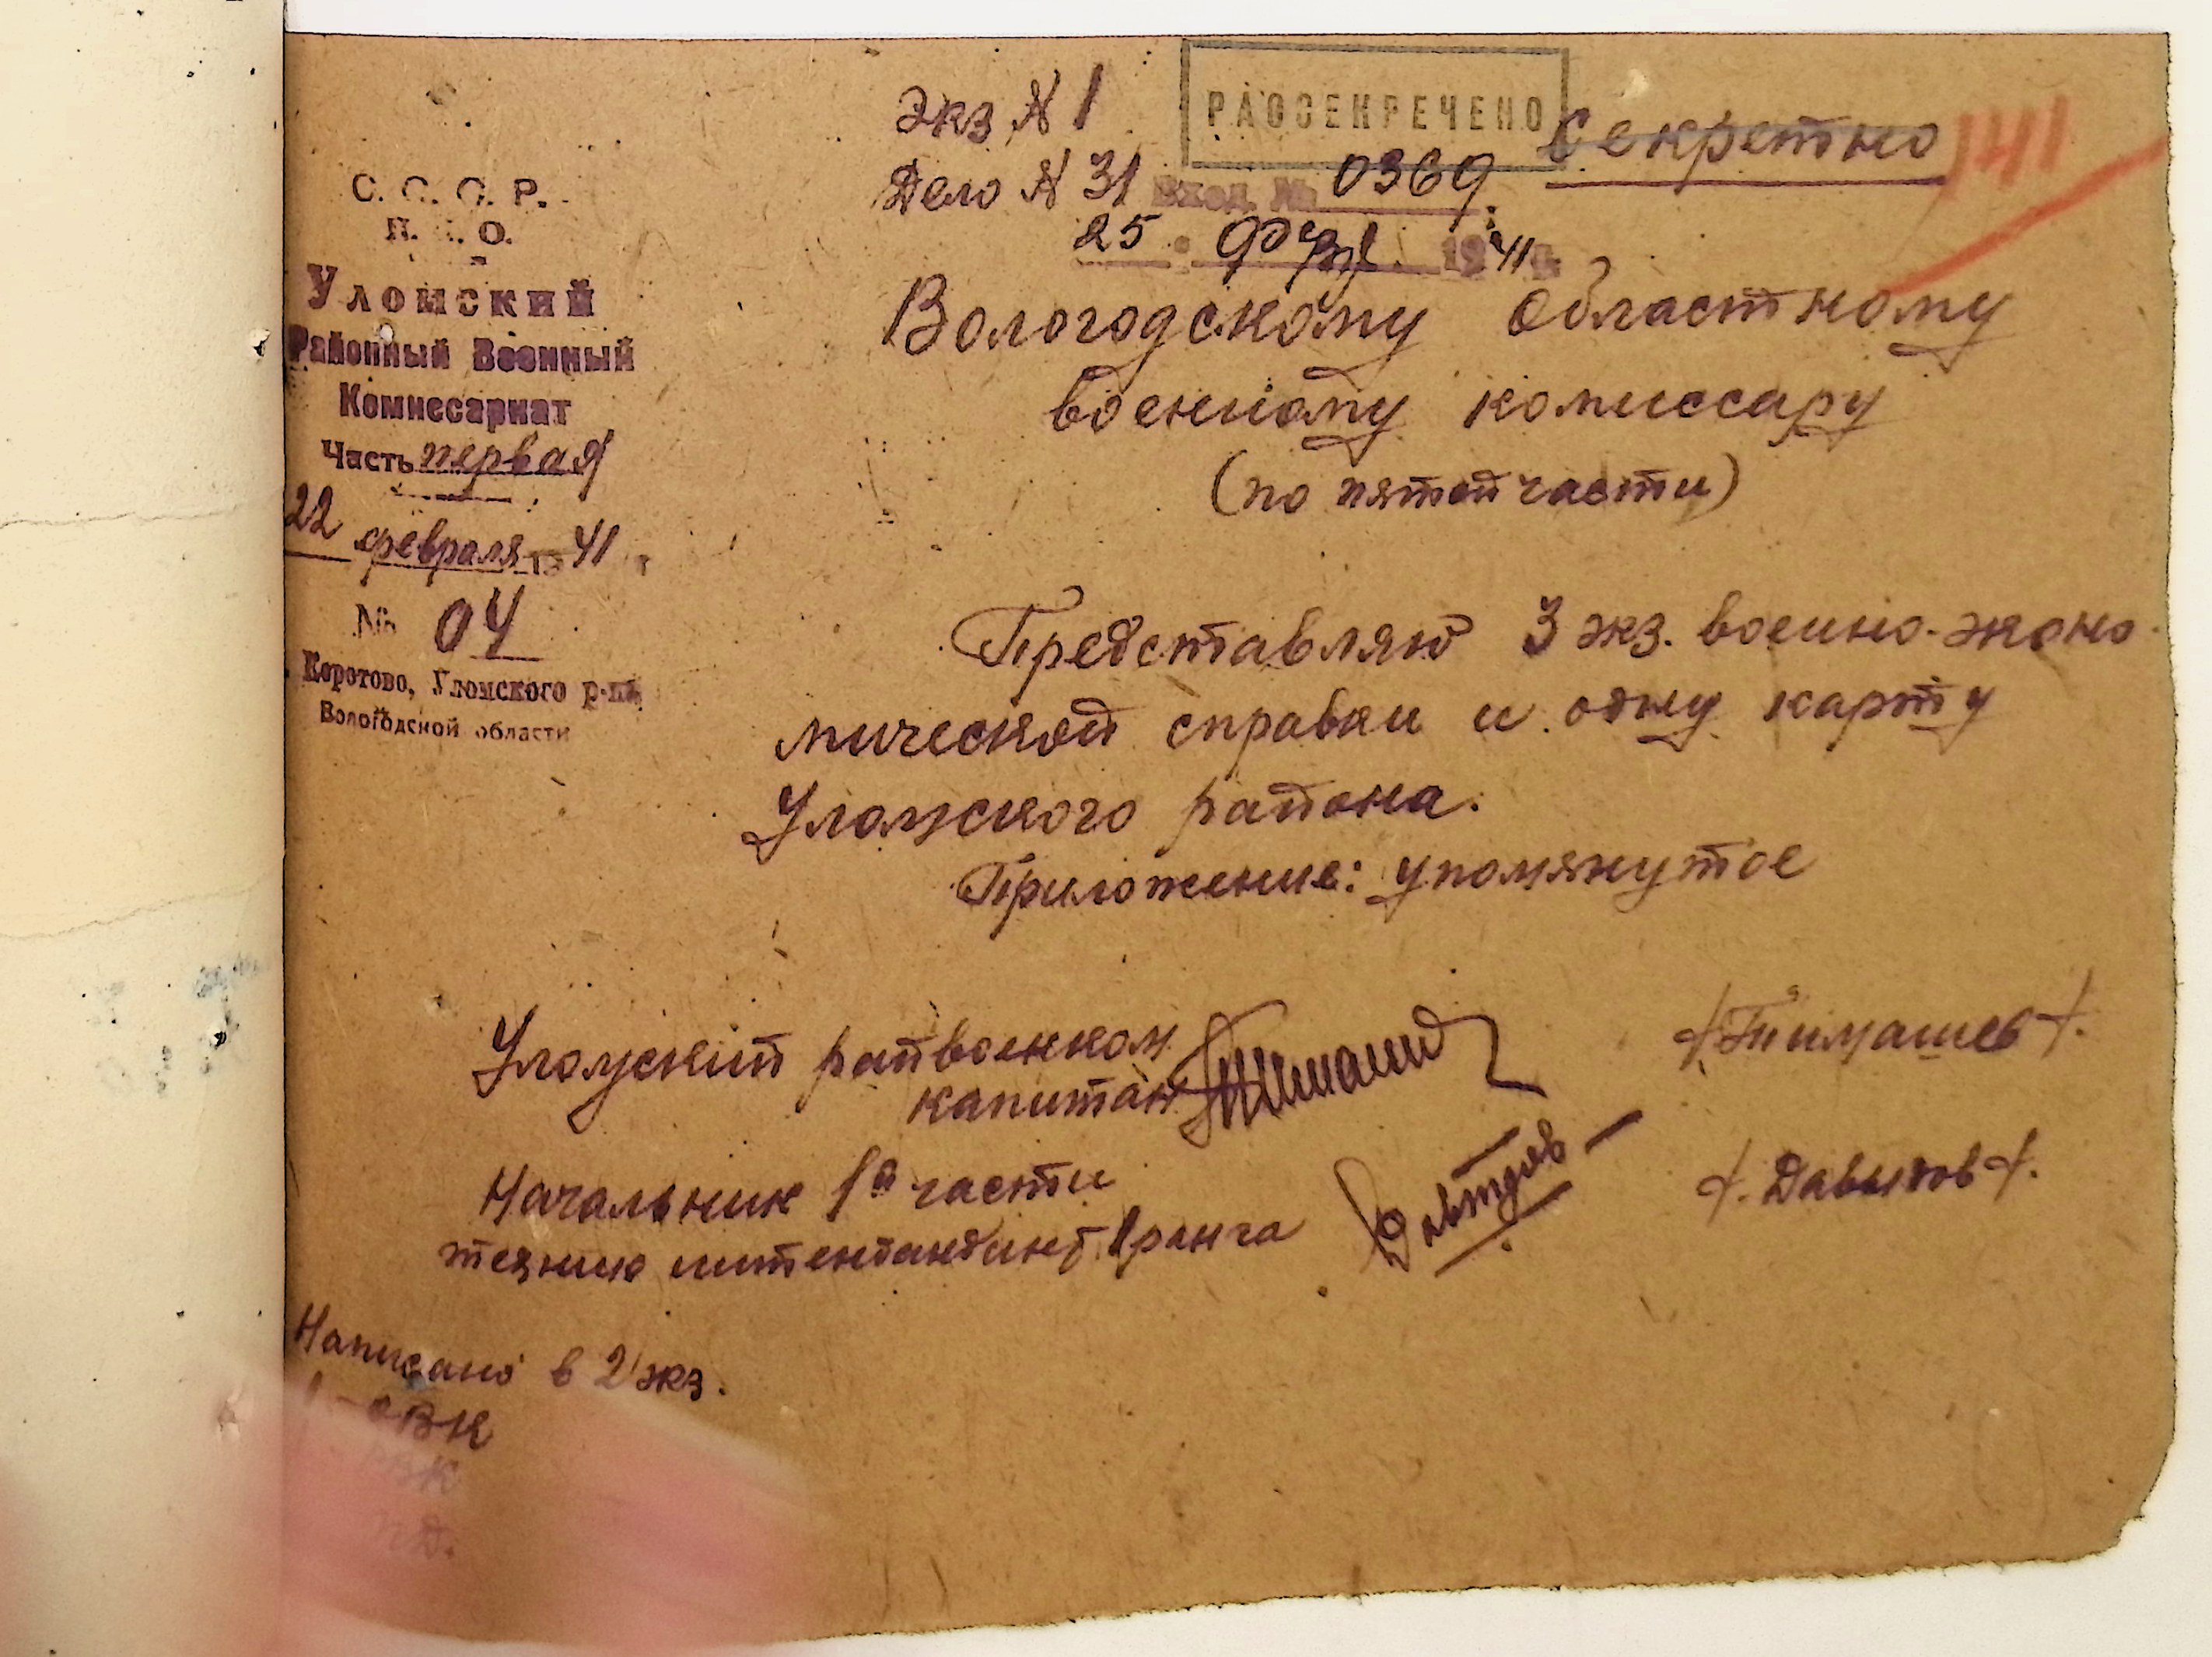 С. С. С. Р.
Н. К. О.
Уломский
Районный Военный
Комиссариат
Часть первая
22 февраля 1941 г
№ 04
Коротово, Уломского р-на
Вологодской области
Экз N 1
РАССЕКРЕЧЕНО
Секретно
141
Дело N 31 Вход. № 0369
25 1941 г.
Вологодскому Областному
военному комиссару
(по пятой части)
Представляю 3 экз. военно-эконо-
мической справки и одну карту
Уломского района.
Приложение: упомянутое
Уломский райвоенком
капитан
/Тимашев/.
Начальник 1й части
техник интендант 1 ранга
/. Давыдов/.
Написано в 2 экз.
1 - ОВК
РВК